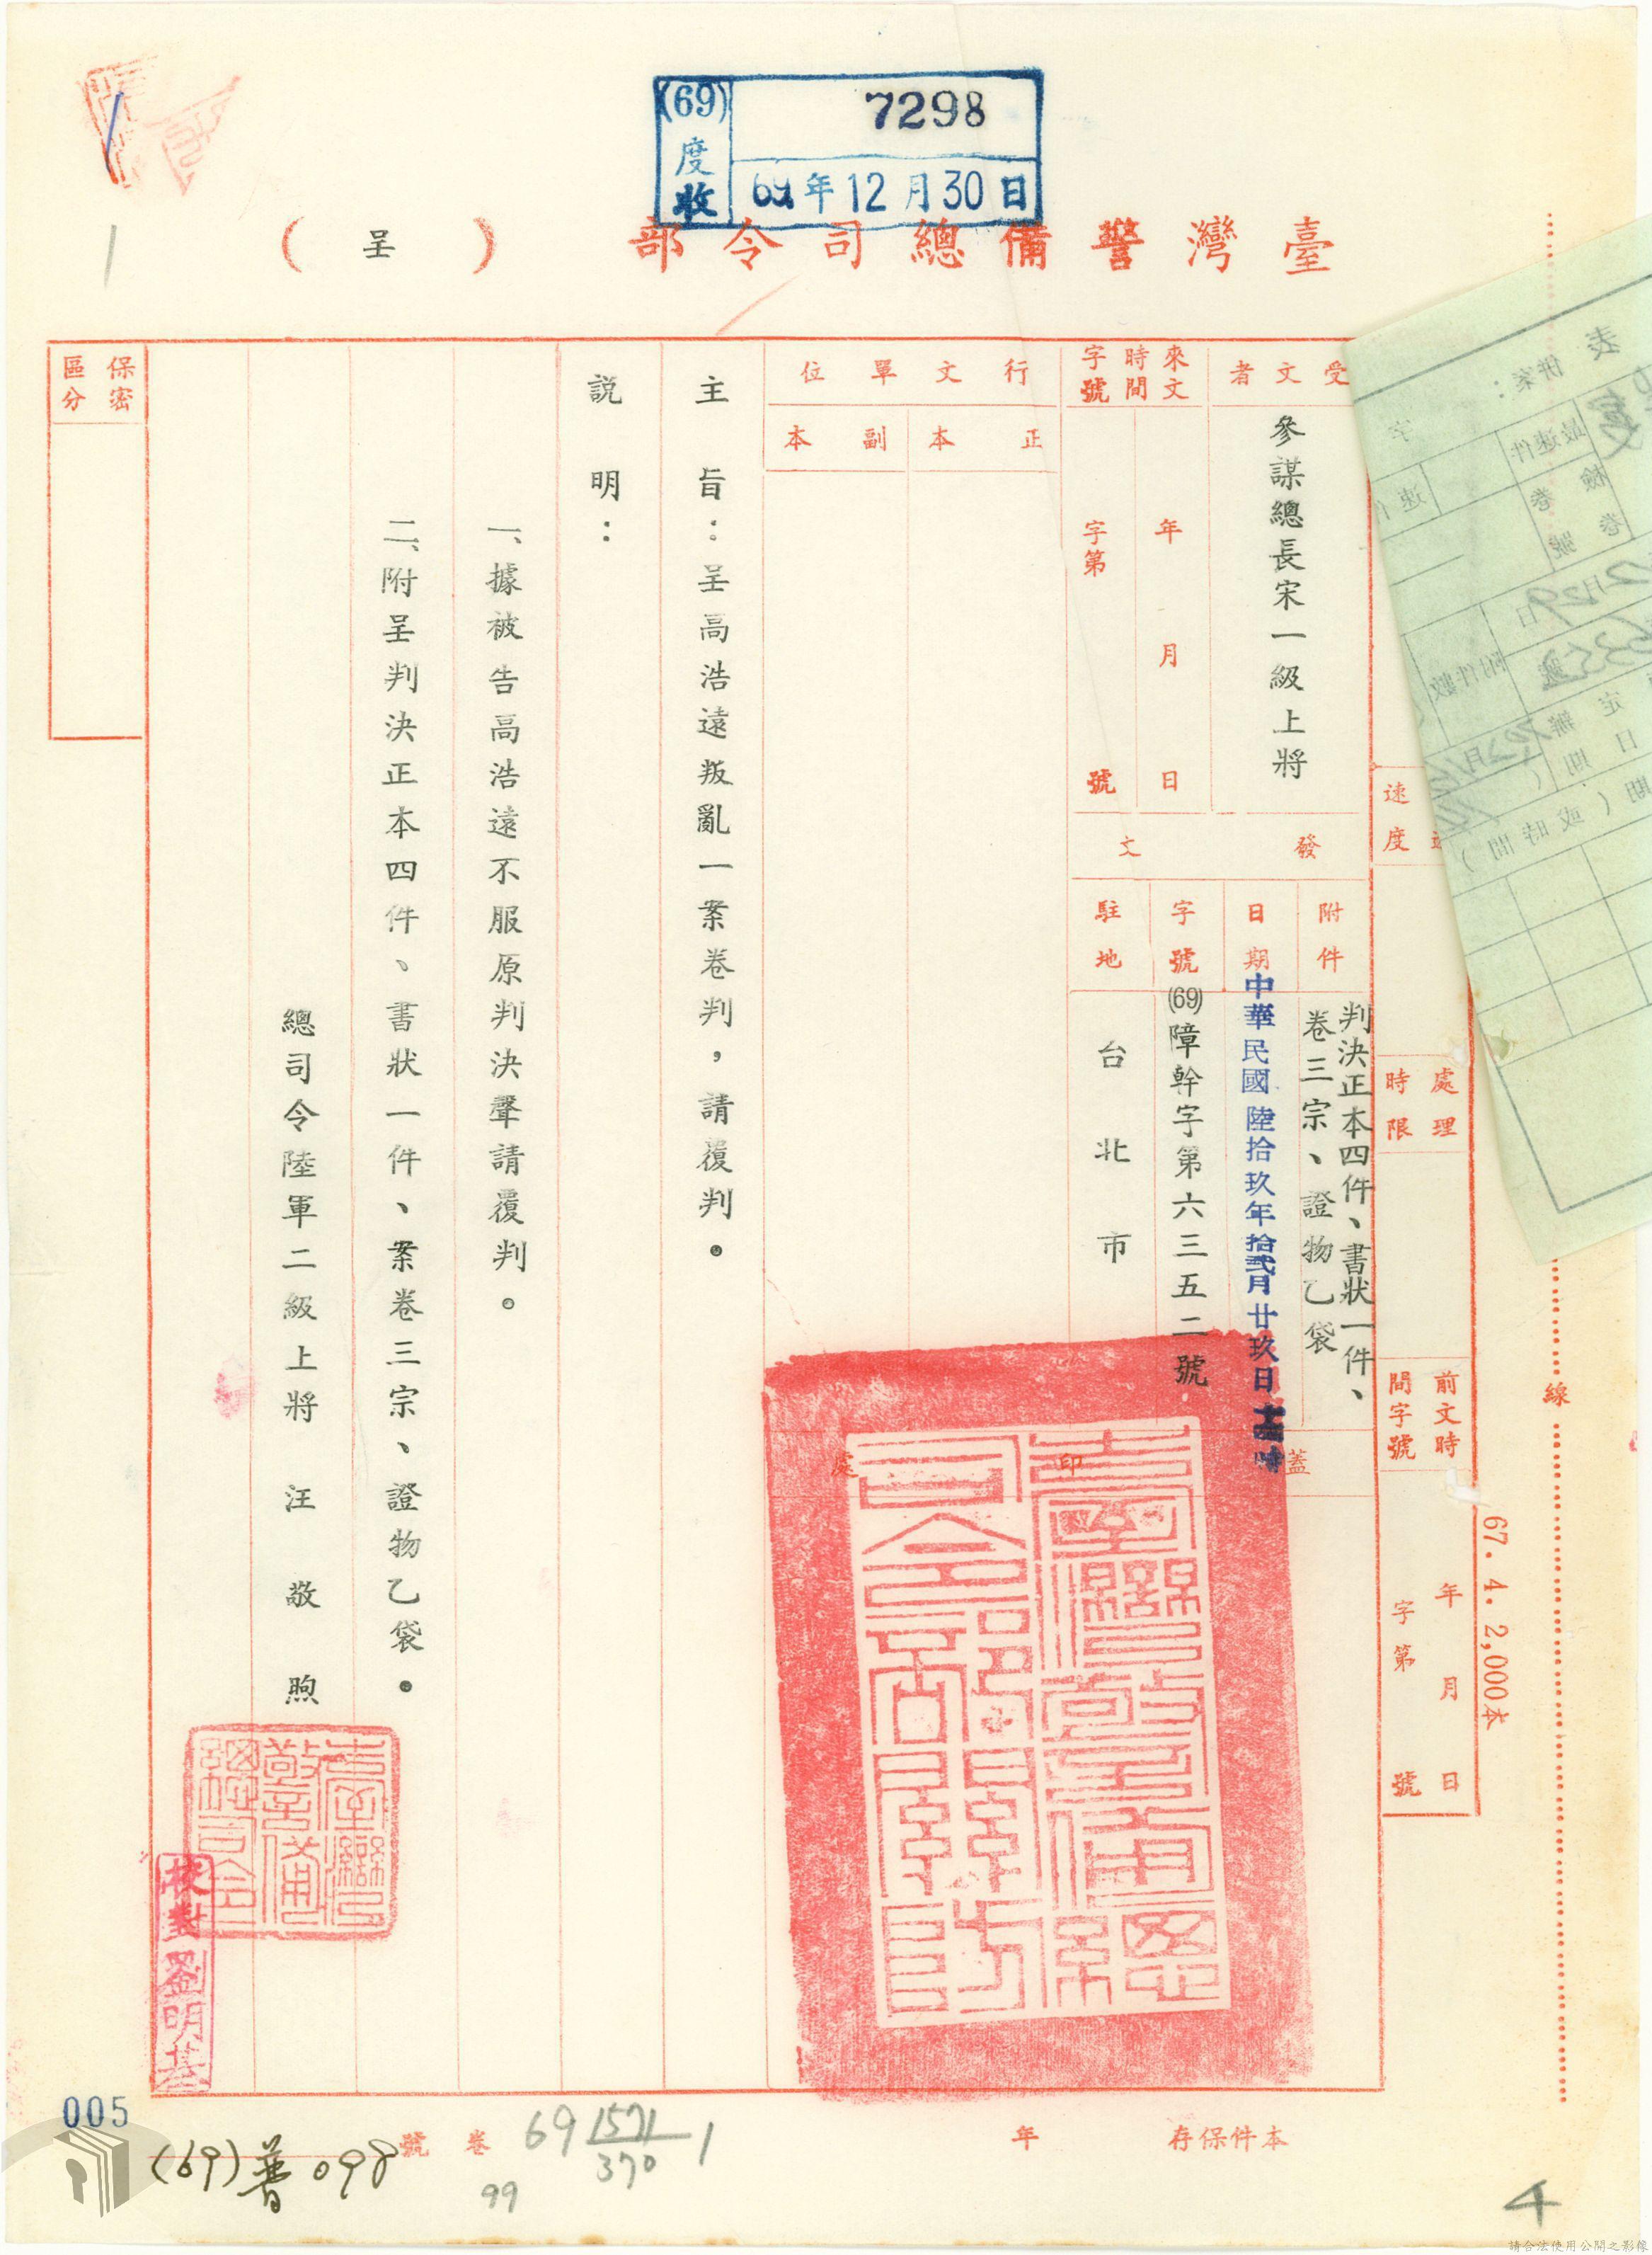 (69)度收
7298
69年12月30日
臺灣警備總司令部(呈)
受文者
參謀總長宋一級上將
來文
時間
字號
年 月 日
字第 號
行文單位
正本
副本
速度
處理時限
前文時間字號
年 月 日
字第 號
發文
附件
判決正本四件、書狀一件、
卷三宗、證物乙袋
日期
中華民國陸拾玖年拾貳月廿玖日
字號
(69)障幹字第六三五二號
駐地
台北市
蓋印處
主旨:呈高浩遠叛亂一案卷判,請覆判。
說明:
一、據被告高浩遠不服原判決聲請覆判。
二、附呈判決正本四件、書狀一件、案卷三宗、證物乙袋。
總司令陸軍二級上將 汪敬煦
保密區分
臺灣警備總司令
校對劉明基
線
67.4.2,000本
表
併案:
最速件
速
檢卷
卷號
附件數
月29日
定
辦
日期
期(或時間)
本件保存 年
卷號
69 1571/370 1
99
(69)普098
005
4
請合法使用公開之影像